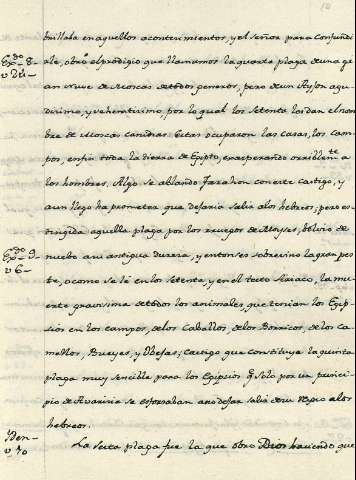 brillaba en aquellos acontecimientos, y el Señor para confundir
le, obró el prodigio que llamamos la quarta plaga de una gr
an nuve de Moscas de todos generos, pero de un Ayjon agu
disimo, y vehementisimo, por lo qual los Setenta los dan el nom
bre de Moscas caninas. Estas ocuparon las casas, los cam
pos, en fin toda la tierra de Egipto, exasperando orriblemte a
los hombres. Algo se ablandó Farahon con este castigo, y
aun llego ha prometer que dejaria salir a los hebreos; pero es
tinguida aquella plaga por los ruegos de Moyses, bolvio de
nuebo a su antigua dureza, y entonses sobrevino la gran pes
te, o como se lé en los Setenta, y en el texto Arabico, la mu
erte gravisima de todos los animales, que tenian los Egip
sios en los campos, de los Caballos, de los Borricos, de los ca
mellos, Bueyes, y Obejas; castigo que constituye la quinta
plaga muy sencible para los Egipsios q. solo por un princi
pio de Avaricia se esforsaban a no dejar salir de su Reyno a los
hebreos.
La sexta plaga fue la que obro Dios haciendo que
Exdo 8-
v 24-
Exdo 9-
v 6-
v 10
10